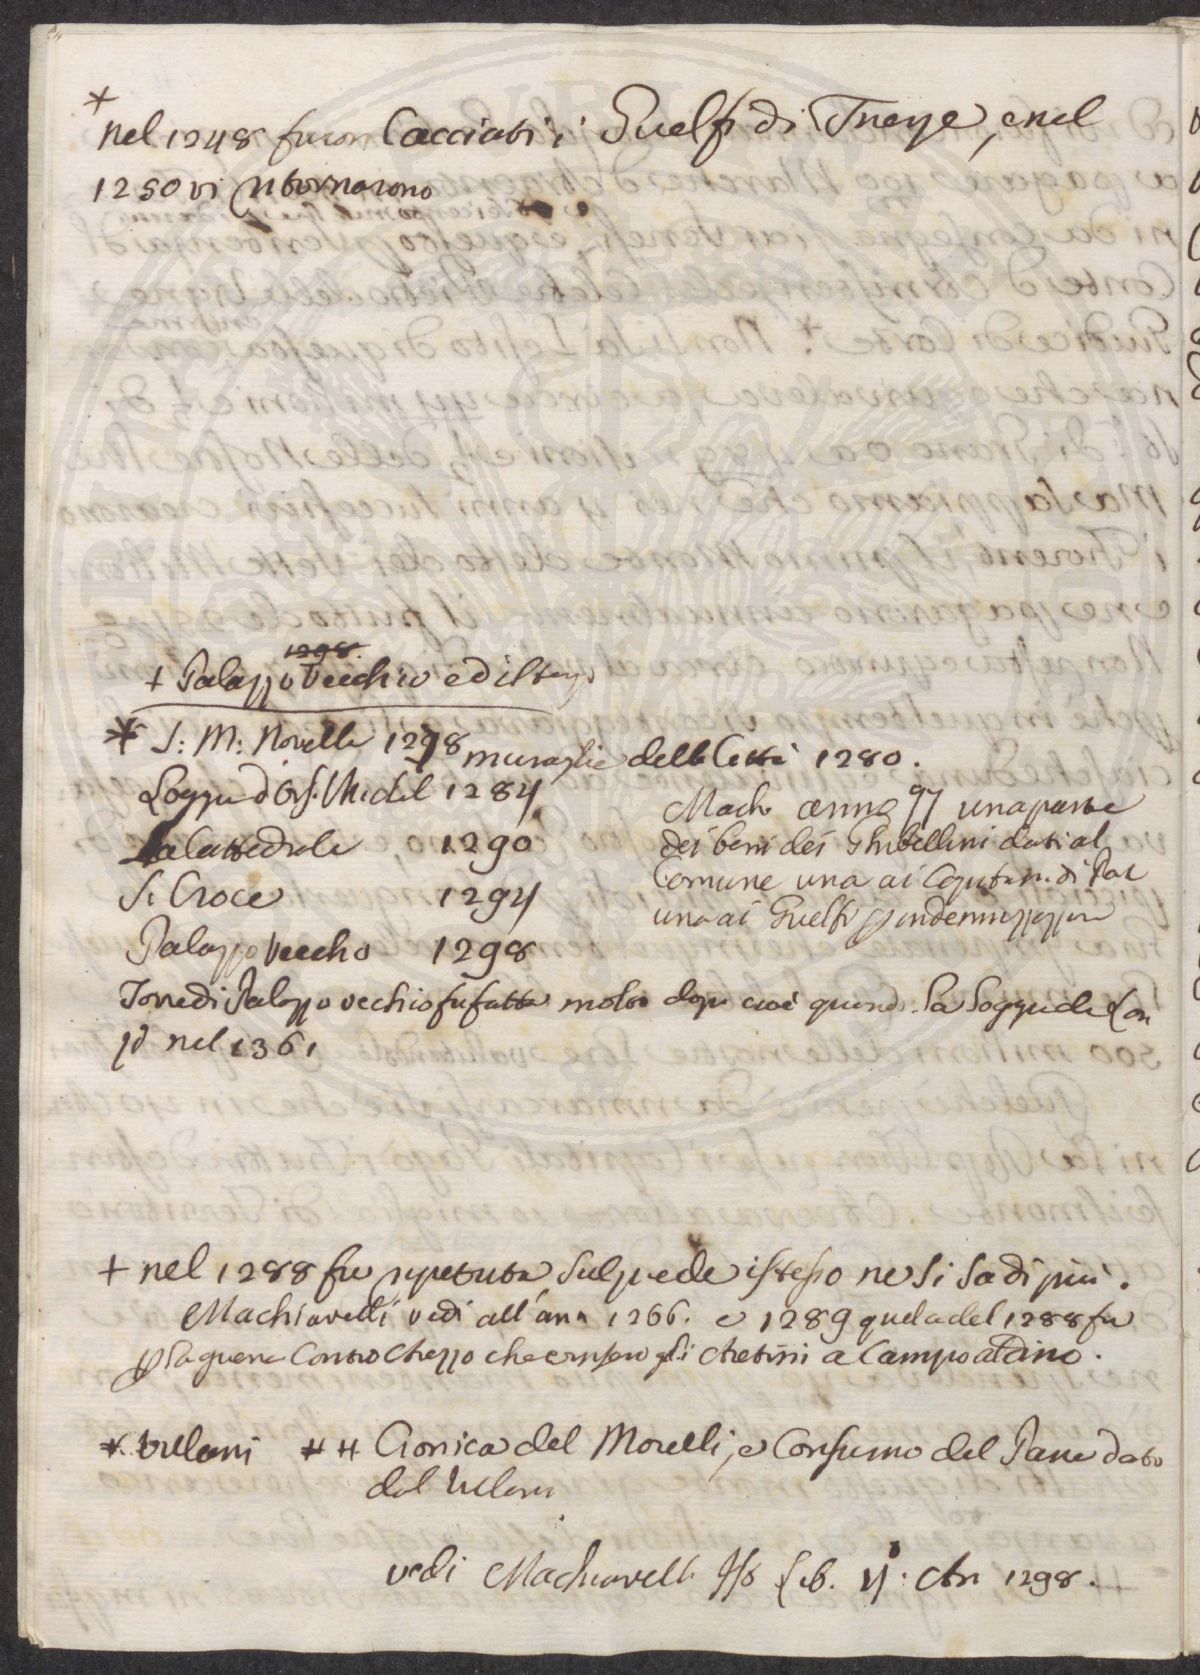 * nel 1248 furon Cacciati i Guelfi di Firenze, e nel
1250 vi ritornarono
1298.
+ Palazzo Vecchio ed il
* S: M: Novella 1298 muraglie della Città 1280.
Loggia d'Ors. Michel 1284
La Cattedrale 1290
S. Croce 1294
Palazzo Vecchio 1298
Mach. anno 97 una parte
dei beni dei Ghibellini dati al
Comune una ai Capitan. di Par
una ai Guelfi p indennizzazzione
Torre di Palazzo vecchio fu fatta molto dopo cioè quando la Loggia de Lan
zi nel 1361
+ nel 1288 fu ripetuta sul piede istesso ne si sa di piu.
Machiavelli vedi all'ann 1266. e 1289 quela del 1288 fu
p la guerra Contro Arezzo che gli Aretini a Campoaldino.
* Villani ## Cronica del Morelli, e Consumo del Pane dato
dal Villani
vedi Machiavelli Lib. An 1298.